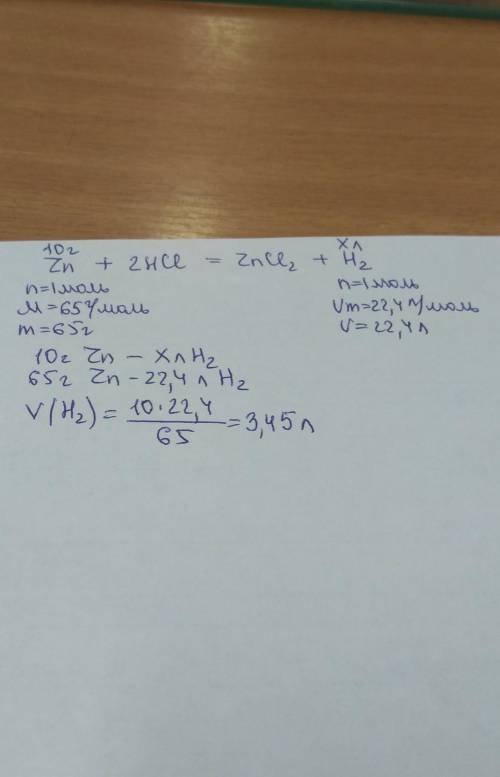 10г хл
Zn + 2HCl = ZnCl₂ + H₂
n=1моль n=1моль
M=65г/моль Vm=22,4л/моль
m=65г V=22,4л
10г Zn – хл H₂
65г Zn – 22,4 л H₂
V(H₂) = 10·22,4 / 65 = 3,45л